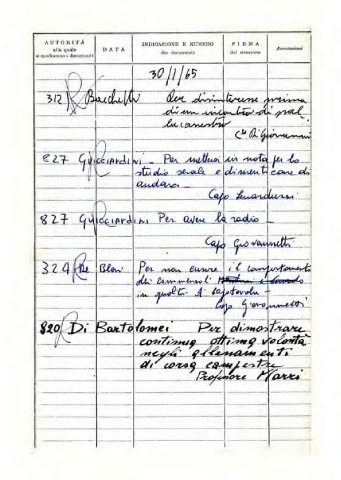 AUTORITÀ
alla quale
si spediscono i documenti
DATA
INDICAZIONE E NUMERO
dei documenti
FIRMA
del ricevente
Annotazioni
30/1/65
312 Bacchelli Per disinteresse prima
di un incontro di pal
lacanestro
C.te Di Giovanni
827 Guicciardini - Per mettersi in nota per lo
studio serale e dimenticare di
andarci -
Capo Lenarduzzi
827 Guicciardini Per avere la radio -
Capo Giovannetti
324 De Blasi Per non curare il comportamento
dei commensali
in qualità di capotavola -
Capo Giovannetti
820 Di Bartolomei Per dimostrare
continua ottima volontà
negli allenamenti
di corsa campestre
Professore Marri